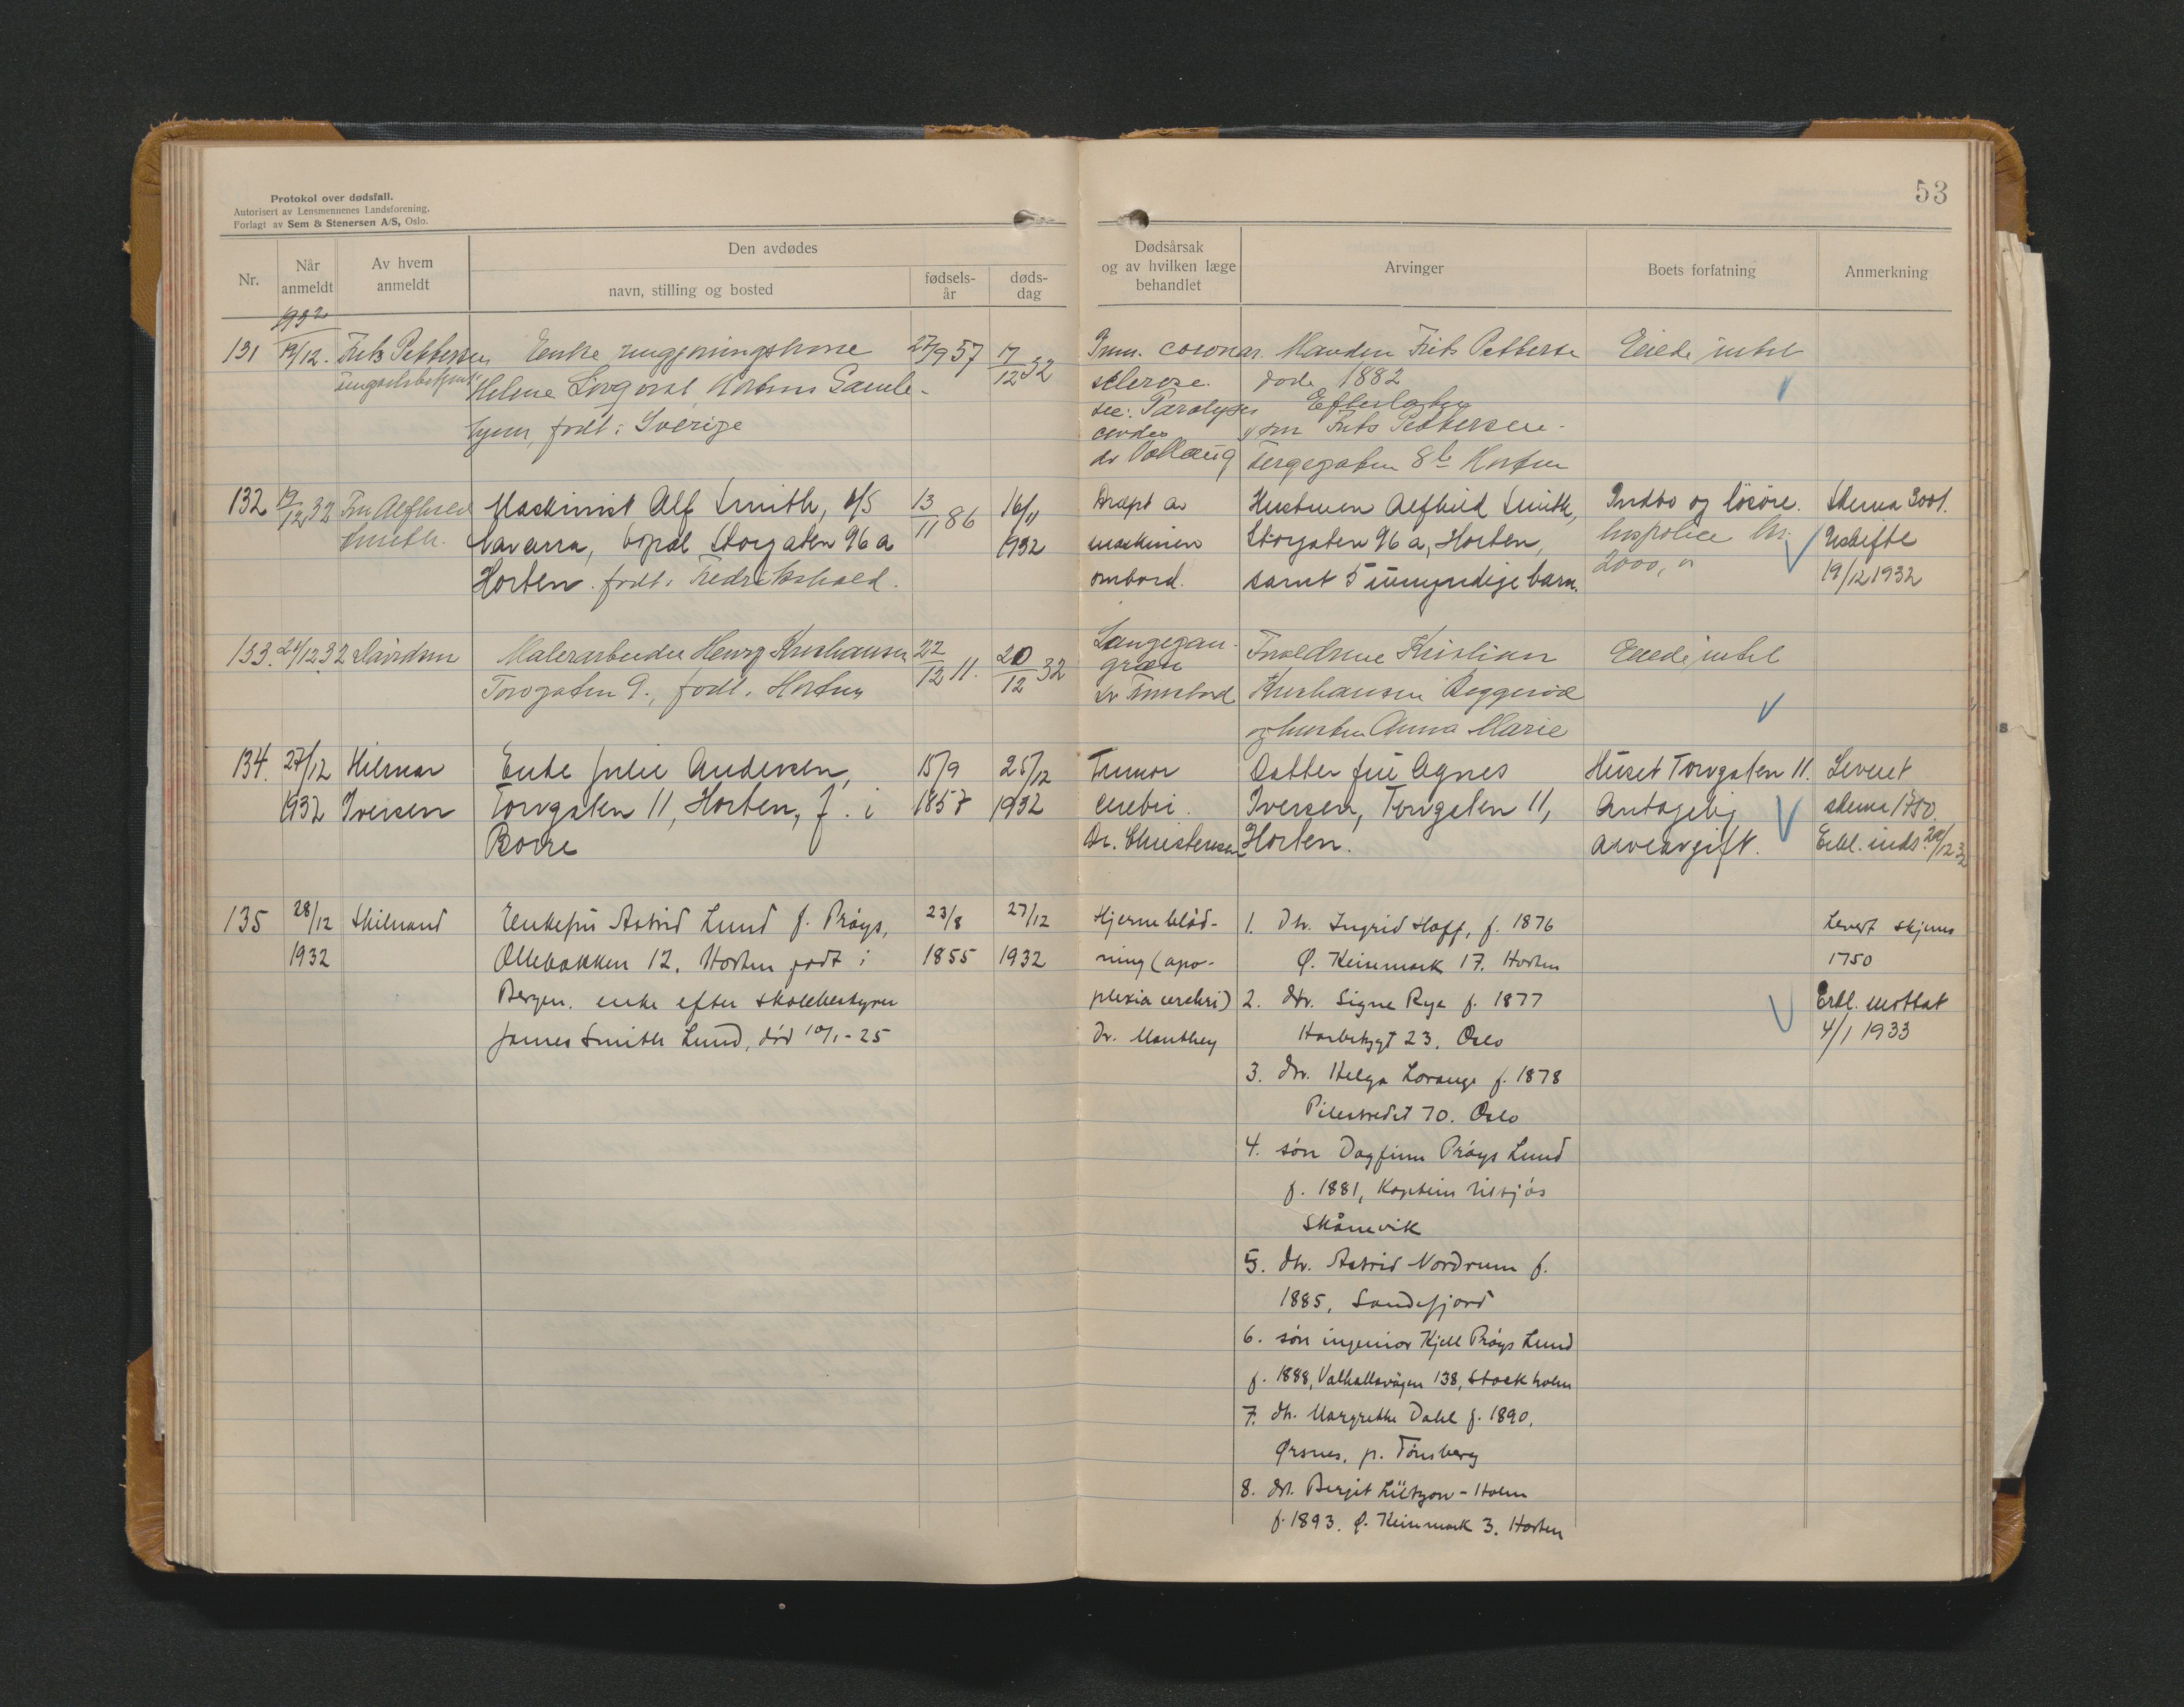 53
Protokol over dødsfall.
Autorisert av Lensmennenes Landsforening.
Forlagt av Sem & Stenersen A/S, Oslo.
Nr.
Når anmeldt
Av hvem anmeldt
Den avdødes
navn, stilling og bosted
fødsels-år
døds-dag
Dødsårsak og av hvilken læge behandlet
Arvinger
Boets forfatning
Anmerkning
1932
131 19/12. Frits Pettersen Enke rengjøringskone 27/9 57 17/12 32
Helene Horten Gamle-
hjem, født i Sverige
coronar.
sklerose.
sec: Paralyses
cordis
dr
Manden Frits Petterse
døde 1882
Efterlater
søn Frits Pettersen.
8b Horten
Eiede intet
132 19/12 32 Fru Alfhild Smith.
Maskinist Alf Smith, M/S
Navarra, bopæl Storgaten 96a
Horten. født i Fredrikshald.
13/11 86
16/11 1932
Dræpt av
maskinen
ombord.
Hustruen Alfhild Smith,
Storgaten 96a, Horten,
samt 5 umyndige barn.
Indbo og løsøre.
kr.
2000,
Skema 3001.
Uskifte
19/12 1932
133. 21/12 32 Davidsen
Malerarbeider Henry Kristiansen
Torvgaten 9., født i Horten
22/12 11.
20/12 32
Lungegan-
græn
Dr
Forældrene Kristian
Kristiansen
og hustru Anna Marie
Eiede intet
134. 27/12 1932 Hilmar Iversen
Enke Julie Andersen,
Torvgaten 11, Horten, f. i
Borre
15/9 1857
25/12 1932
Tumor
cerebri.
Dr. Christensen
Datter fru Agnes
Iversen, Torvgaten 11,
Horten.
Huset Torvgaten 11.
Antagelig
arveavgift.
Leveret
skema 1750.
Erkl. inds. 29/12 32
135 28/12 1932 Skilnand
Enkefru Astrid Lund f. Prøys,
Ollebakken 12, Horten født i
Bergen. enke efter skolebestyrer
James Smith Lund, død 10/1-25
23/8 1855
27/12 1932
Hjerneblød-
ning (apo-
plexia cerebri)
Dr. Manthey
1. Dtr. Ingrid Hoff, f. 1876
Ø. Keisemark 17. Horten
2. dtr. Signe Rye f. 1877
Harbitzgt 23. Oslo
3. dtr. Helga Lorange f. 1878
Pilestredet 70. Oslo
4. søn Dagfinn Prøys Lund
f. 1881, Kaptein tilsjøs
Skånevik
5. dtr. Astrid Nordrum f.
1885, Sandefjord
6. søn ingeniør Kjell Prøys Lund
f. 1888, Valhallavägen 138, Stockholm
7. dtr. Margrethe Dahl f. 1890.
Ørsnes, p. Tønsberg
8. dtr. Bergit Lützow-Holm
f. 1893. Ø. Keisemark 3. Horten
Levert skjema
1750
Erkl. mottat
4/1 1933